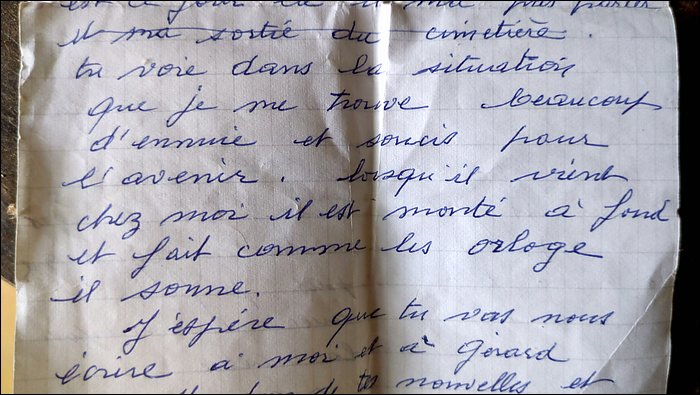 est ce jour là il m'a
et ma sortie du cimetière.
tu voie dans la situation
que je me trouve beaucoup
d'ennuie et soucis pour
l'avenir. lorsqu'il vient
chez moi il est monté à fond
et fait comme les orloge
il sonne.
J'espère que tu vas nous
écrire à moi et à Gérard
de tes nouvelles et